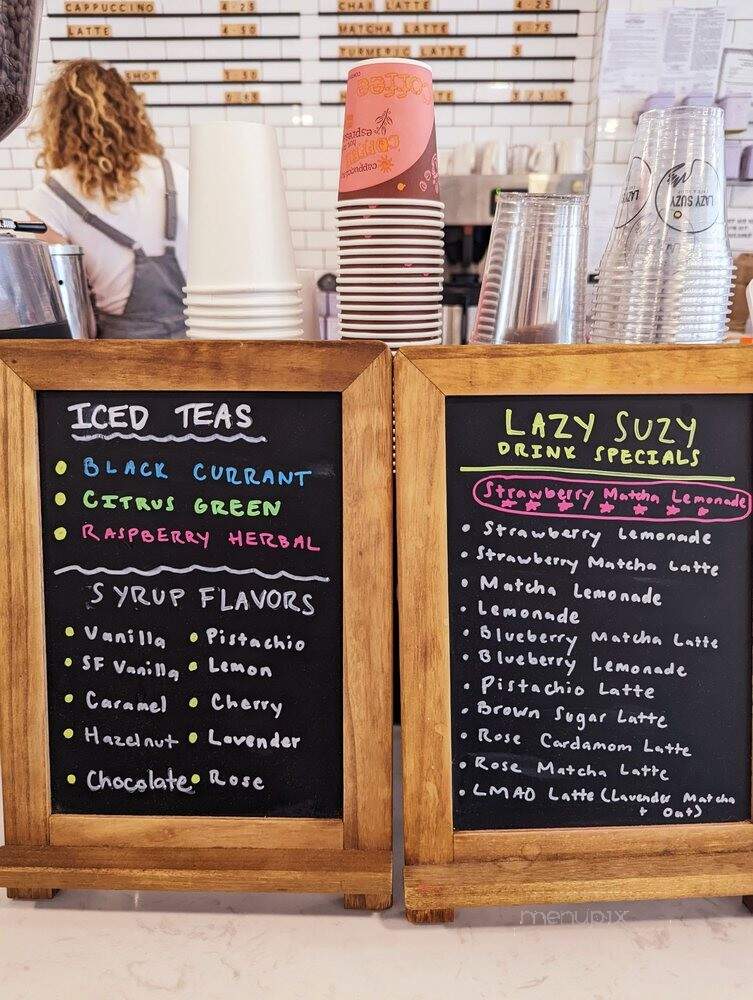 CAPPUCCINO 4-25
LATTE 4-50
SHOT 1-50
CHAI LATTE 4-25
MATCHA LATTE
TURMERIC LATTE 5
coffee
COFFEE
espresso
cappuccino
LAZY SUZY
LAZY
ICED TEAS
BLACK CURRANT
CITRUS GREEN
RASPBERRY HERBAL
SYRUP FLAVORS
Vanilla
SF Vanilla
Caramel
Hazelnut
Chocolate
Pistachio
Lemon
Cherry
Lavender
Rose
LAZY SUZY
DRINK SPECIALS
Strawberry Matcha Lemonade
Strawberry Lemonade
Strawberry Matcha Latte
Matcha Lemonade
Lemonade
Blueberry Matcha Latte
Blueberry Lemonade
Pistachio Latte
Brown Sugar Latte
Rose Cardamom Latte
Rose Matcha Latte
LMAO Latte (Lavender Matcha
+ Oat)
menupix